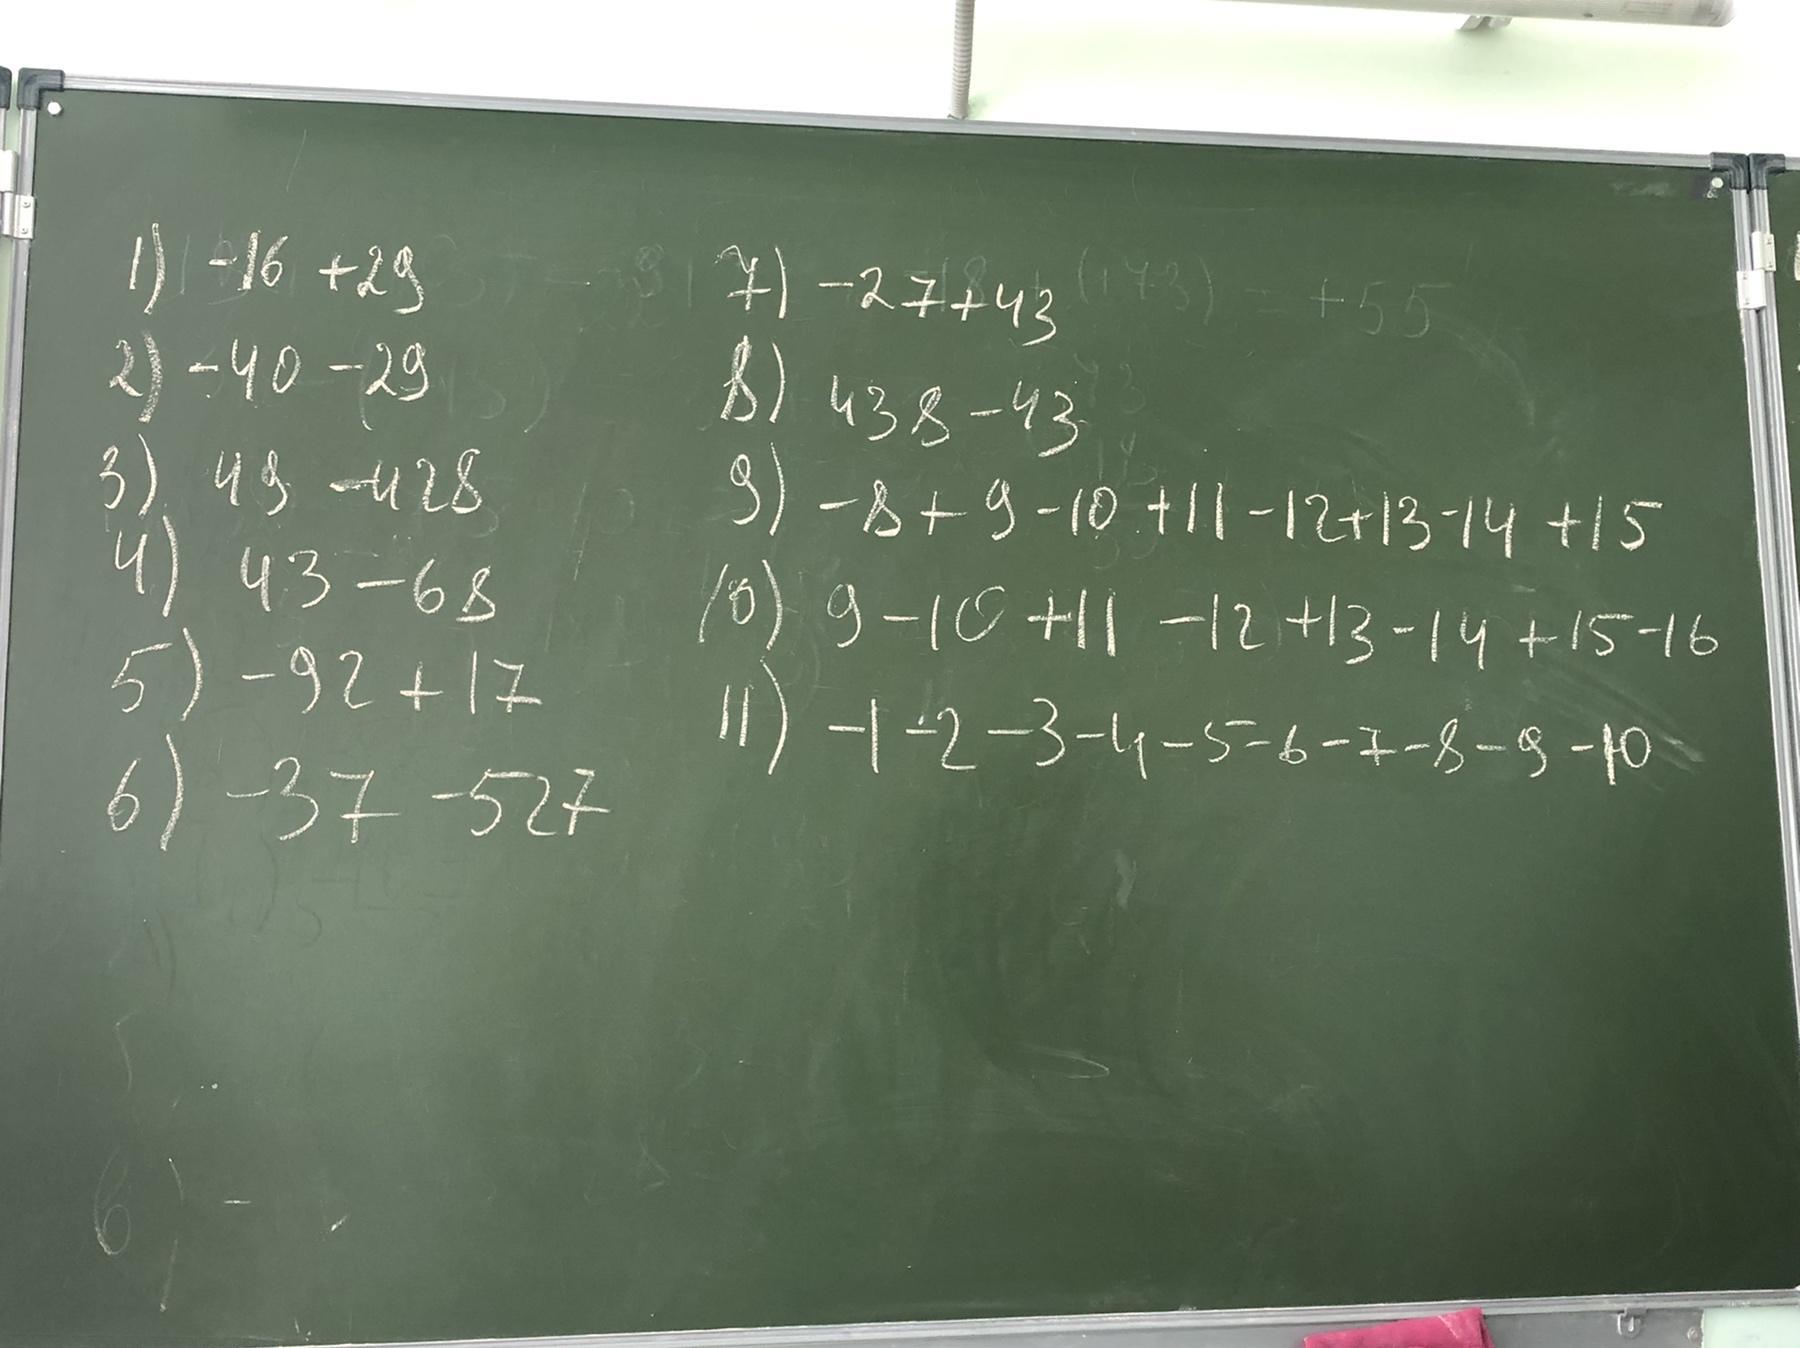 1) -16 +29
2) -40 -29
3) 49 -428
4) 43 -68
5) -92 +17
6) -37 -527
7) -27+43
8) 438 -43
9) -8 + 9 -10 +11 -12+13-14 +15
10) 9 -10 +11 -12 +13 -14 +15 -16
11) -1 -2 -3 -4 -5 -6 -7 -8 -9 -10